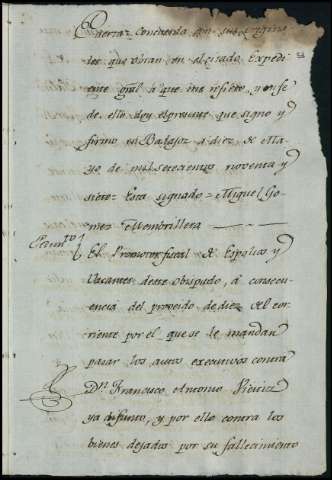 puertas Concuerda con sus originales
les que obran en el citado Expedi
ente gral. à que me refiero, y en fe
de ello doy el presente que signo y
firmo en Badajoz a diez de Ma
yo de mil setecientos noventa y
siete = Esta signado = Miguel Go
mez Membrillera
El Promotor fiscal de Espolios y
Vacantes de este obispado, à consecu
encia del proveido de diez del cor
riente por el que se le mandan
pasar los autos executivos contra
Dn. Francisco Antonio
ya difunto, y por ello contra los
bienes dejados por su fallecimiento